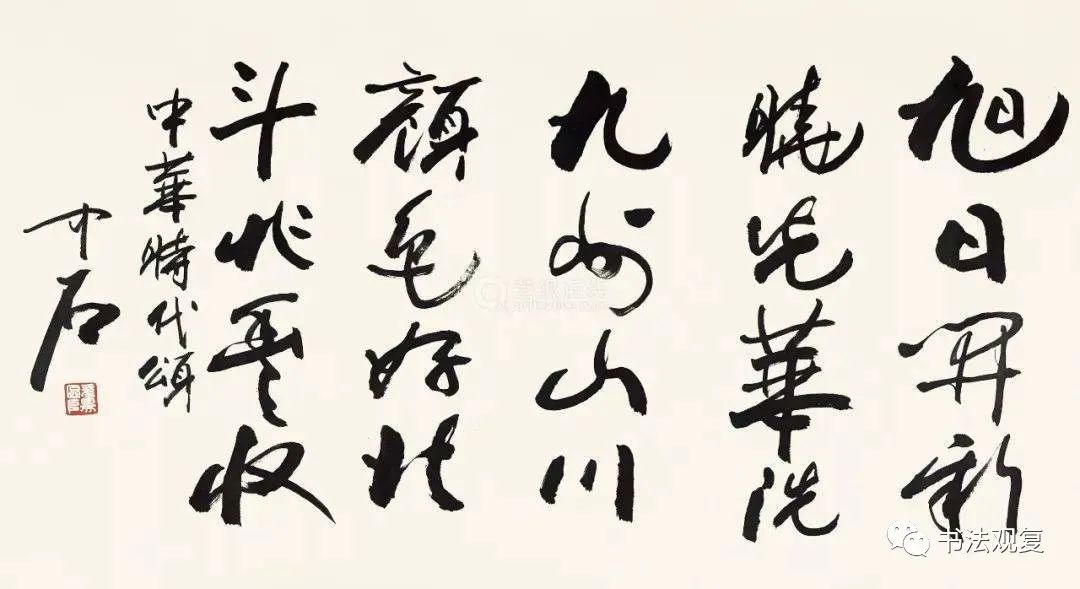 旭日開新
曉光華洗
九州山川
顏色好北
斗兆豐收
中華時代頌
中石
书法观复